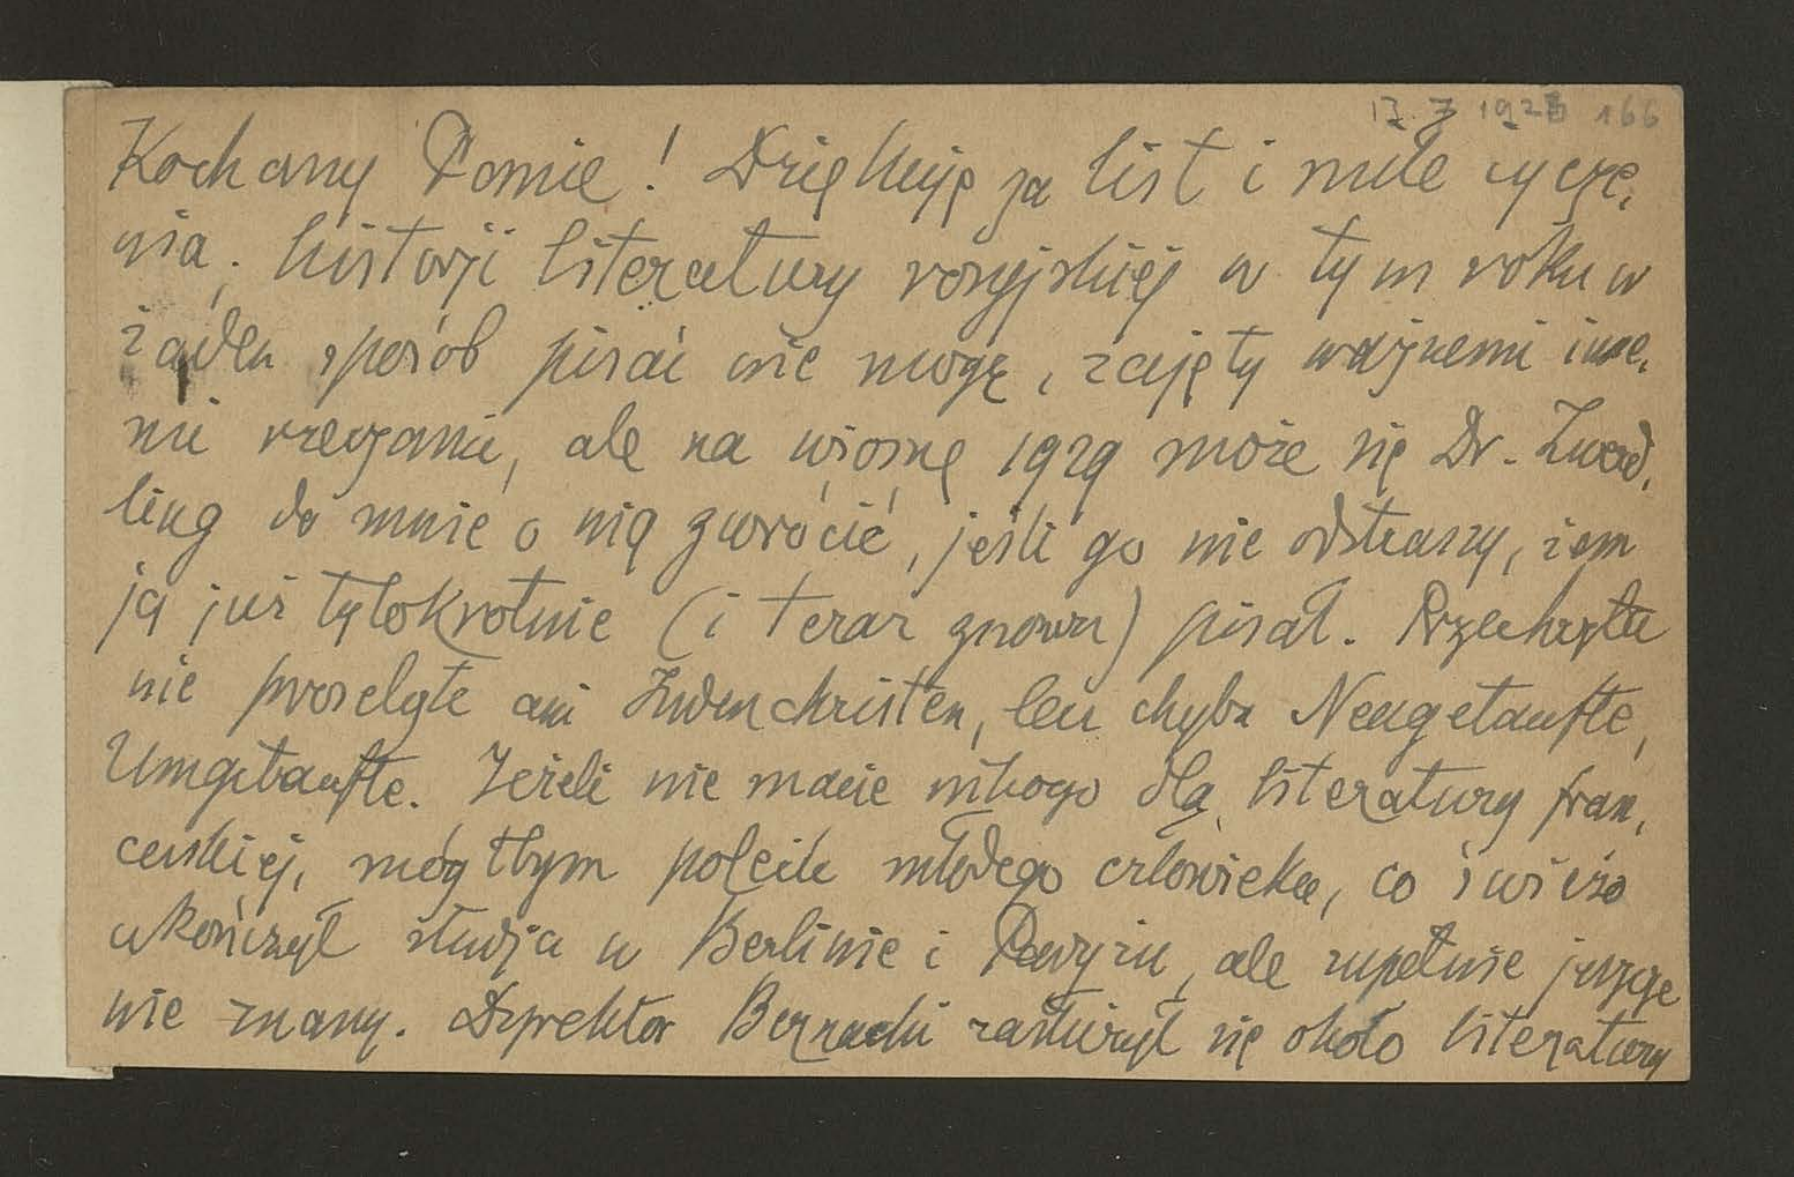 13. 7 1928 166
Kochany Panie! Dziękuję za list i miłe życze,
nia; historji literatury rosyjskiej w tym roku w
żaden sposób pisać nie mogę, zajęty ważnemi inne,
mi rzeczami, ale na wiosnę 1929 może się Dr. Zwerd,
ling do mnie o nią zwrócić, jeśli go nie odstraszy, żem
ją już tylokrotnie (i teraz znowu) pisał. Przechrzta
nie proselyte ani Judenchristen, lecz chyba Neugetaufte,
Umgetaufte. Jeżeli nie macie nikogo dla literatury fran,
cuskiej, mógłbym polecić młodego człowieka, co świeżo
ukończył studja w Berlinie i Paryżu, ale zupełnie jeszcze
nie znany. Dyrektor Bernacki zasłużył się około literatury